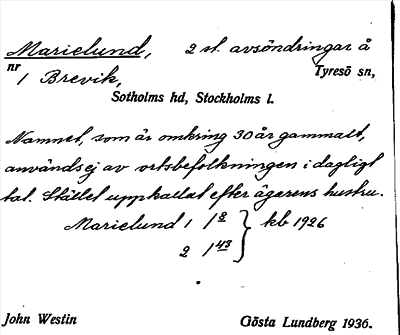 Marielund, 2 st. avsöndringar å
nr 1 Brevik, Tyresö sn,
Sotholms hd, Stockholms l.
Namnet, som är omkring 30 år gammalt,
användes ej av ortsbefolkningen i dagligt
tal. Stället uppkallat efter ägarens hustru.
Marielund 1 1⁸ } kb 1926
2 1⁴³
John Westin Gösta Lundberg 1936.